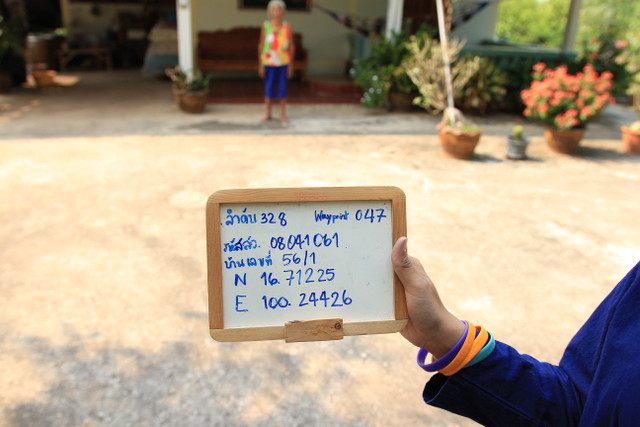 ลำดับ 328 Waypoint 047
รหัสสว. 08041061
บ้านเลขที่ 56/1
N 16.71225
E 100.24426